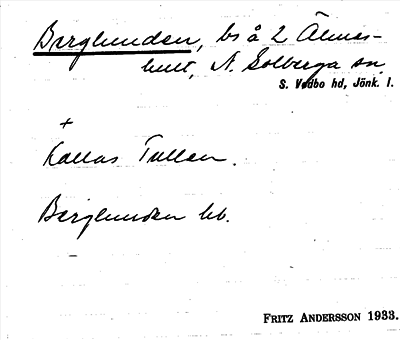 Berglunden, bs å 2 Älmes-
hult, N. Solberga sn.
S. Vedbo hd, Jönk. l.
+
Kallas Tullen.
Berglunden hb.
FRITZ ANDERSSON 1933.